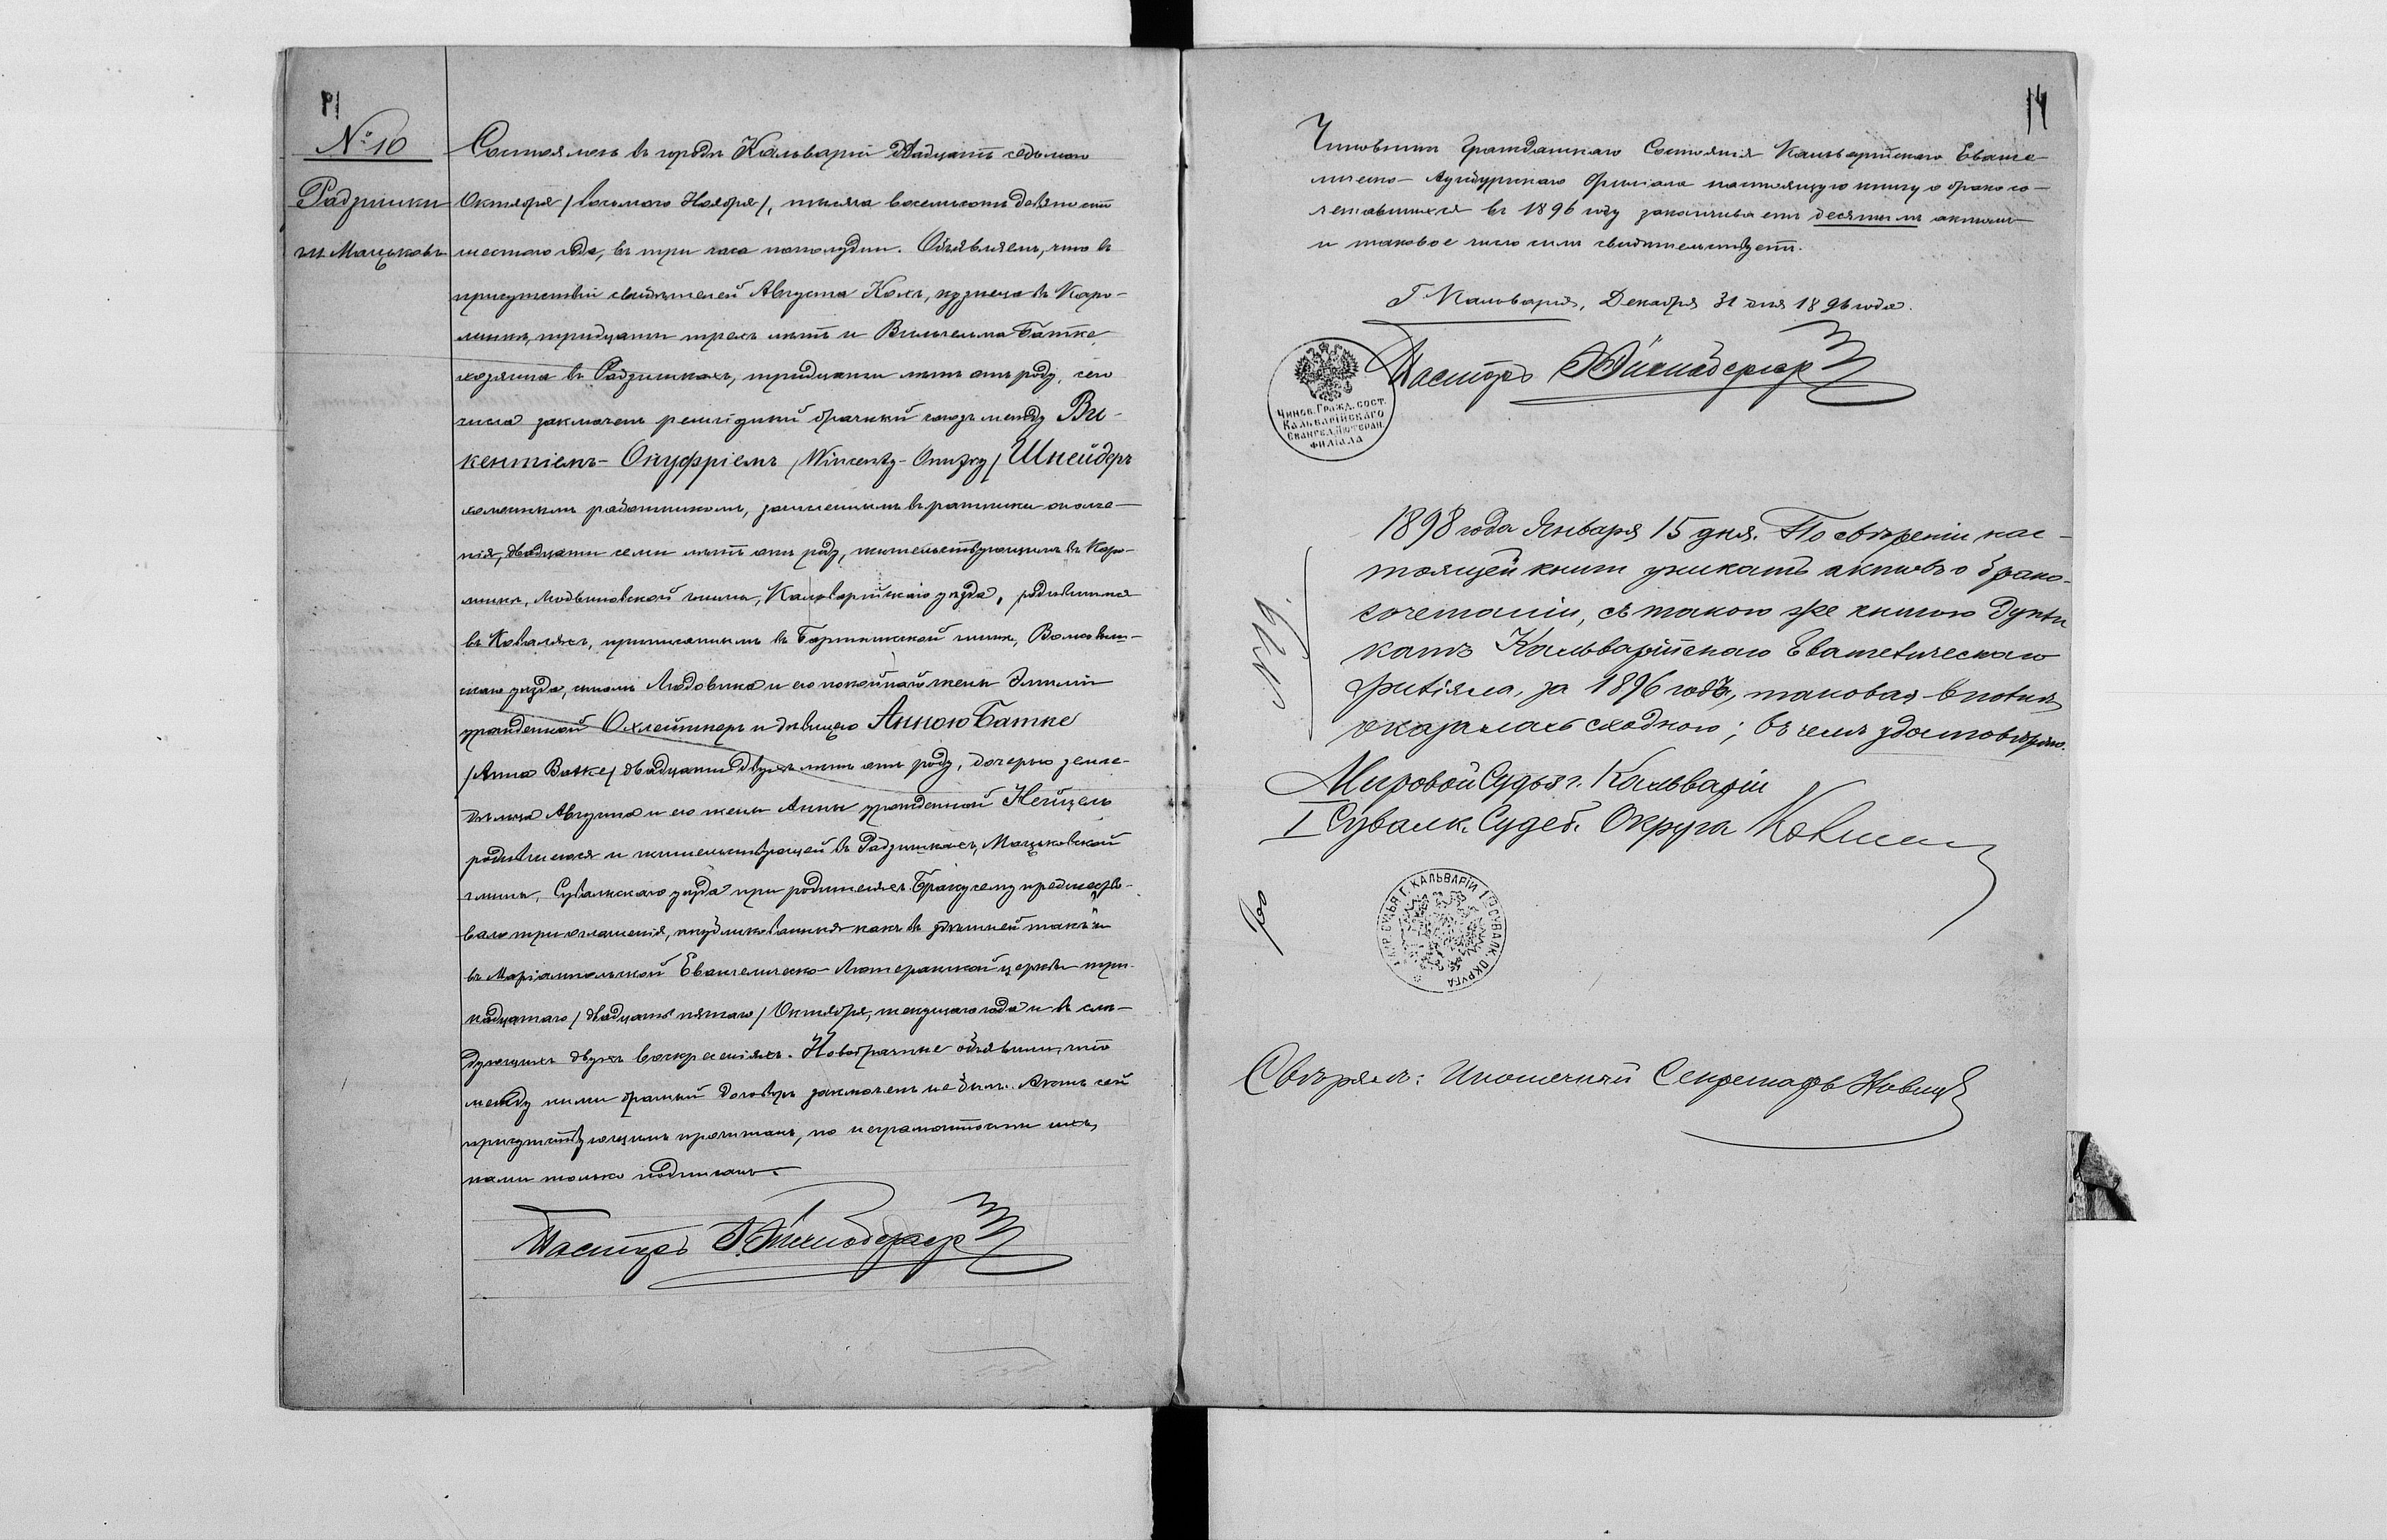 № 10
Радзишки
гм. Мацьковъ
Состоялось въ городѣ Кальваріи двадцать седьмого
Октября /восьмого Ноября/, тысяча восемьсотъ девяносто
шестого года, въ три часа пополудни. Объявляемъ, что въ
присутствіи свидѣтелей Августа Кохъ, кузнеца въ Каро-
линѣ, тридцати трехъ лѣтъ и Вильгельма Батке,
хозяина въ Радзишкахъ, тридцати лѣтъ отъ роду, сего
числа заключенъ религіозный брачный союзъ между Ви-
кентіемъ-Онуфріемъ /Wincenty-Onufry/ Шнейдеръ
холостымъ работникомъ, зачисленнымъ въ ратники ополче-
нія, двадцати семи лѣтъ отъ роду, жительствующимъ въ Каро-
линѣ, Людвиновской гмины, Кальварійскаго уѣзда, родившимся
въ Коваляхъ, приписаннымъ въ Бартникской гминѣ, Волковыш-
скаго уѣзда, сыномъ Людовика и его покойной жены Эмиліи
урожденной Охлейтнеръ и дѣвицею Анною Батке
/Anna Batke/ двадцати двухъ лѣтъ отъ роду, дочерью земле-
дѣльца Августа и его жены Анны урожденной Нейцель
родившеюся и жительствующей въ Радзишкахъ, Мацьковской
гмины, Сувалкскаго уѣзда при родителяхъ. Браку сему предшество-
вало три оглашенія, опубликованныя какъ въ здѣшней такъ и
въ Маріампольской Евангелическо-Лютеранской церкви три-
надцатаго /двадцать пятаго/ Октября, текущаго года и въ слѣ-
дующихъ двухъ воскресеніяхъ. Новобрачные объявили, что
между ними брачный договоръ заключенъ не былъ. Актъ сей
присутствующимъ прочитанъ, по неграмотности ихъ,
нами только подписанъ.
Пасторъ
14
Чиновникъ Гражданскаго Состоянія Кальварійскаго Еванге-
лическо-Аугсбургскаго Филіала настоящую книгу о бракосо-
четавшихся въ 1896 году заканчиваетъ десятымъ актомъ
и таковое число симъ свидѣтельствуетъ.
Г. Кальварія, Декабря 31 дня 1896 года.
Пасторъ
Чинов. Гражд. сост.
Кальварійскаго
Евангел. Лютеран.
филіала
1898 года Января 15 дня. По свѣреніи нас-
тоящей книги уникатъ актовъ о брако-
сочетаніи, съ такою же книгою Дупли
катъ Кальварійскаго Евангелическаго
филіяла, за 1896 годъ, таковая вполнѣ
оказалась сходною; въ чемъ удостовѣряю.
№ 79
Мировой Судья г. Кальваріи
I Сувалк. Судеб. Округа
МИР. СУДЬЯ Г. КАЛЬВАРІИ I СУВАЛК. ОКРУГА
Свѣрялъ: Ипотечный Секретарь